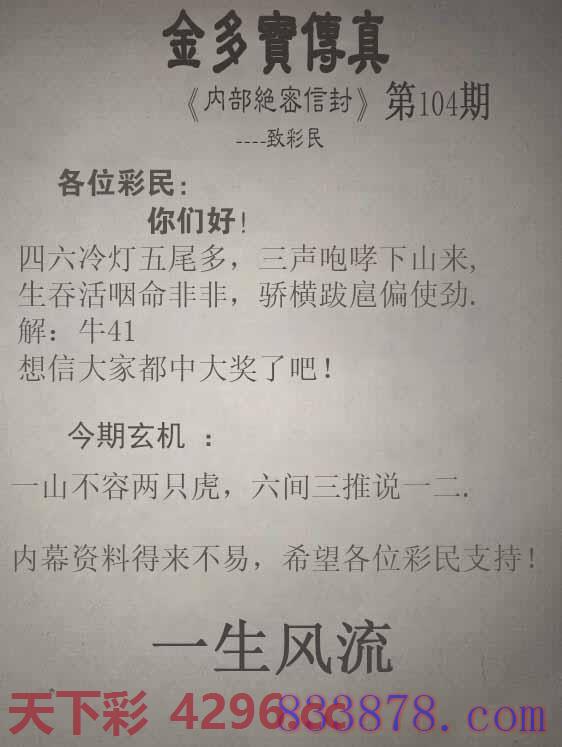 金多寶傳真
《内部絶密信封》第104期
----致彩民
各位彩民:
你们好!
四六冷灯五尾多，三声咆哮下山来,
生吞活咽命非非，骄横跋扈偏使劲.
解：牛41
想信大家都中大奖了吧!
今期玄机 ：
一山不容两只虎，六间三推说一二.
内幕资料得来不易，希望各位彩民支持!
一生风流
天下彩 4296.cc
883878.com